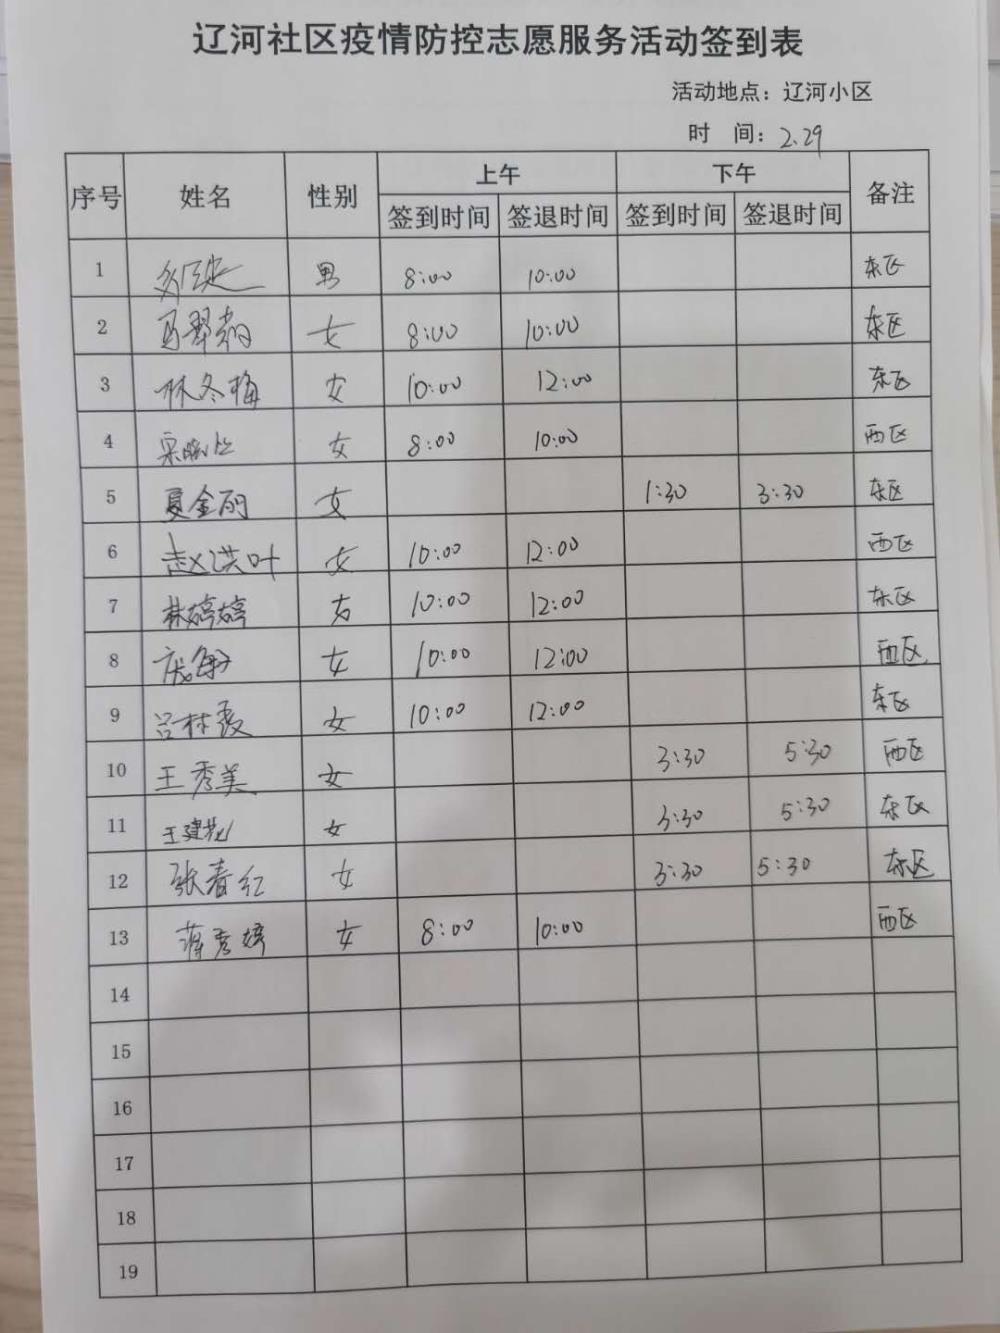 辽河社区疫情防控志愿服务活动签到表
活动地点：辽河小区
时 间：2.29
序号 姓名 性别 上午 下午 备注
签到时间 签退时间 签到时间 签退时间
1 男 8:00 10:00 东区
2 女 8:00 10:00 东区
3 林冬梅 女 10:00 12:00 东区
4 女 8:00 10:00 西区
5 夏金丽 女 1:30 3:30 东区
6 赵洪叶 女 10:00 12:00 西区
7 林婷婷 女 10:00 12:00 东区
8 庞敏 女 10:00 12:00 西区
9 吕林霞 女 10:00 12:00 东区
10 王秀美 女 3:30 5:30 西区
11 王建花 女 3:30 5:30 东区
12 张春红 女 3:30 5:30 东区
13 蒋秀婷 女 8:00 10:00 西区
14
15
16
17
18
19